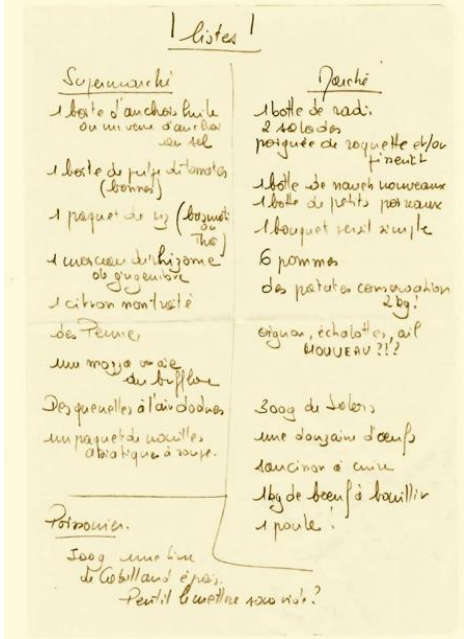 ! listes !
Supermarché
1 boîte d'anchois huile
ou un verre d'anchois
au sel
1 boîte de pulpe de tomates
(bonnes)
1 paquet de riz (basmati
ou
Thaï)
1 morceau de rhizome
de gingembre
1 citron non traité
des Penne
une mozza vraie
du bufflone
Des quenelles à l'air dodues
un paquet de nouilles
asiatiques à soupe.
Poissonier.
300g une
de Cabillaud épais.
le mettre sous vide ?
Marché
1 botte de radis
2 salades
poignée de roquette et/ou
1 botte de navets nouveaux
1 botte de petits poireaux
1 bouquet persil simple
6 pommes
des patates conservation
2 kg !
oignon, échalottes, ail
NOUVEAU ?!?
300g de
une douzaine d'oeufs
saucisson à cuire
1kg de boeuf à bouillir
1 poule !